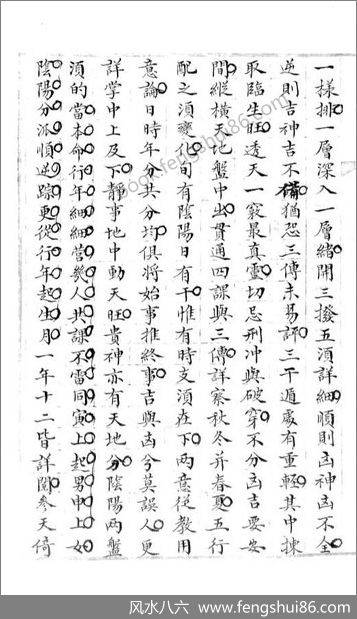 一樣排一層深入一層緒開三撥五須詳細順則凶神凶不全
逆則吉神吉不備猶恐三傳未易評三干遁處有重輕其中揀
取臨生旺透天一竅最真靈切忌刑冲與破穿不分凶吉要安
間縱橫天地盤中出貫通四課與三傳詳察秋冬并春夏五行
配之須變化旬有陰陽日有干惟有時支須在下两意從教用
意論日時年分共分均俱將始事推終事吉與凶兮莫誤人更
詳掌中上及下靜事地中動天旺貴神亦有天地分陰陽兩盤
須的當本命行年細細营幾人共課不雷同寅上起男申上女
陰陽分派順逆踪更從行年起生月一年十二皆詳閱參天倚
www.fengshui86.com
风水八六 | www.fengshui86.com